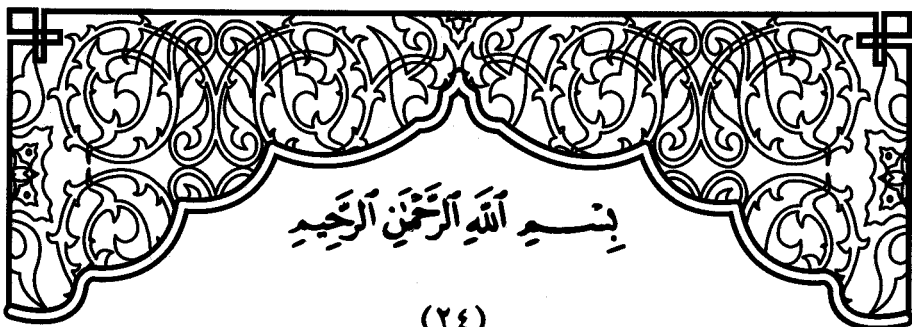 بِسْمِ ٱللَّهِ ٱلرَّحْمَٰنِ ٱلرَّحِيمِ
(٢٤)